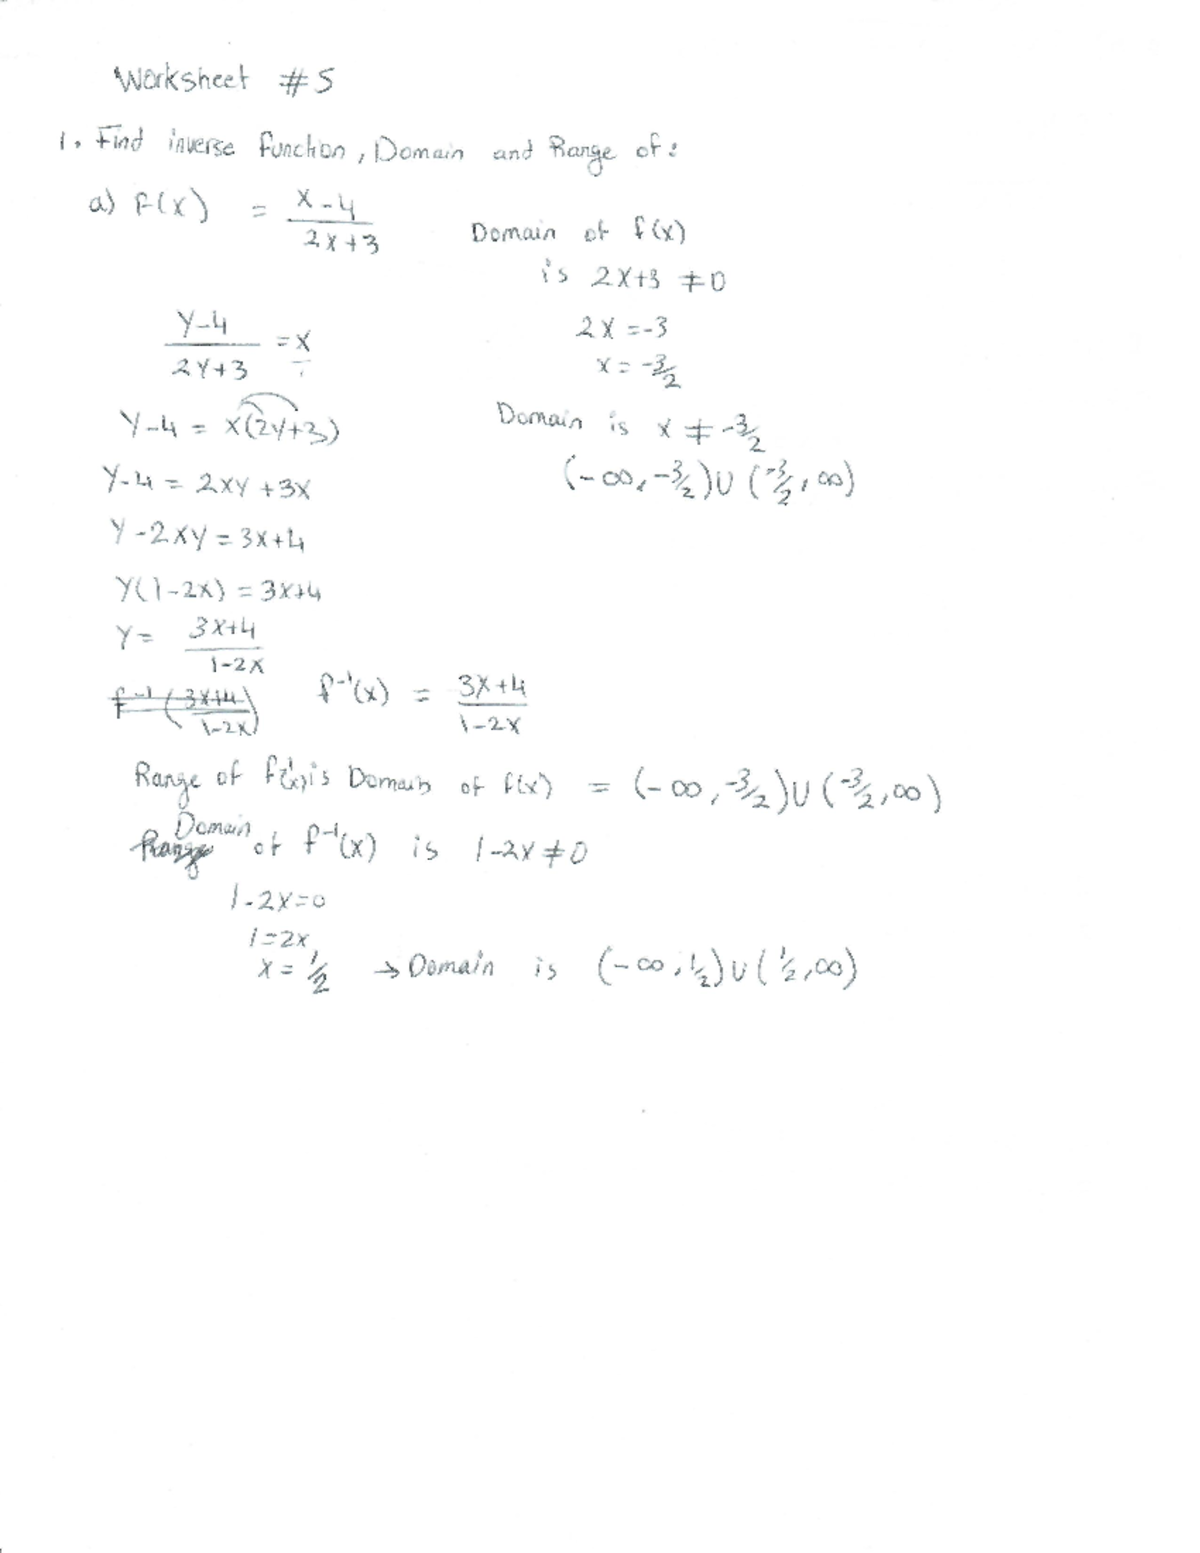 Worksheet #5
1. Find inverse function, Domain and Range of:
a) f(x) = x-4 / 2x+3
Domain of f(x)
is 2x+3 ≠ 0
2x = -3
x = -3/2
Domain is x ≠ -3/2
(-∞, -3/2) ∪ (-3/2, ∞)
y-4 / 2y+3 = x
y-4 = x(2y+3)
y-4 = 2xy + 3x
y - 2xy = 3x+4
y(1-2x) = 3x+4
y = 3x+4 / 1-2x
f⁻¹(3x+4 / 1-2x) f⁻¹(x) = 3x+4 / 1-2x
Range of f⁻¹(x) is Domain of f(x) = (-∞, -3/2) ∪ (-3/2, ∞)
Range Domain of f⁻¹(x) is 1-2x ≠ 0
1-2x=0
1=2x
x = 1/2 → Domain is (-∞, 1/2) ∪ (1/2, ∞)